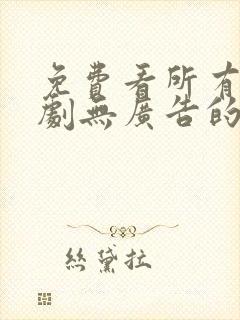 免費看所有
劇無廣告的
絲黛拉